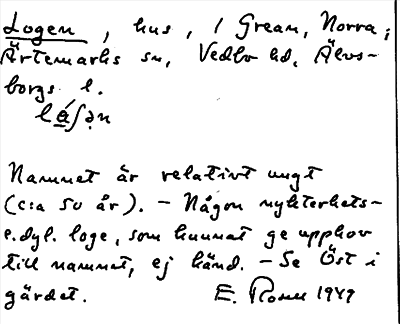 Logen, hus, i Grean, Norra,
Ärtemarks sn, Vedbo hd, Älvs-
borgs l.
Namnet är relativt ungt
(c:a 50 år). – Någon nykterhets-
e.dyl. loge, som kunnat ge upphov
till namnet, ej känd. – Se Öst i
gärdet. E. 1949